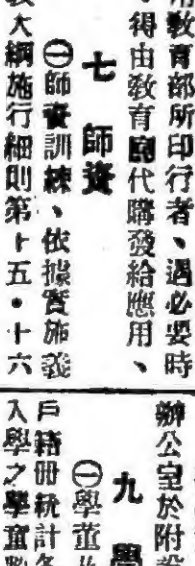 用教育部所印行者、遇必要時
、得由敎育部代購發給應用、
七 師資
㊀師資訓練、依據實施義
敎大綱施行細則第十五•十六
辦公室於附設
九 學
㊀學董
戶籍册統計各
入學之學童數